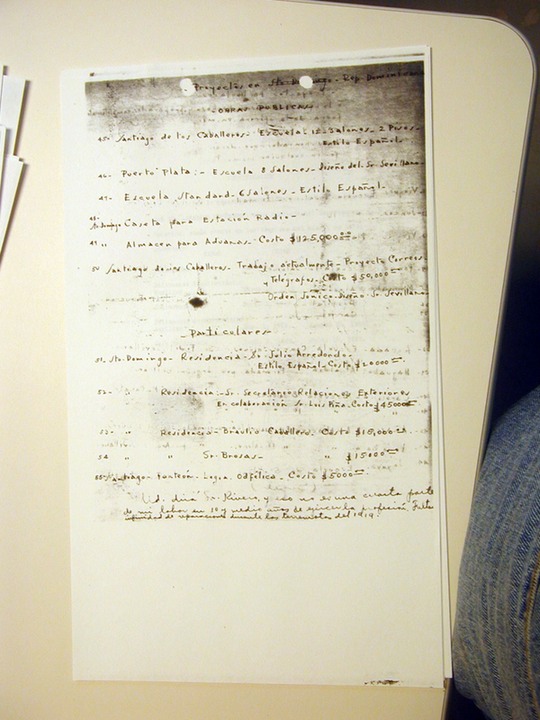 Proyectos en Sto. Domingo - Rep. Dominicana
OBRAS PUBLICAS
45- Santiago de los Caballeros - Escuela: 12 Salones - 2 Pisos -
Estilo Español -
46- Puerto Plata: - Escuela 8 Salones - Diseño del Sr. Sevillano -
47- Escuela Standard - 6 Salones - Estilo Español -
48-
Sto. Domingo Caseta para Estación Radio -
49 " Almacen para Aduanas - Costo $125,000.00
50 Santiago de los Caballeros - Trabajo actualmente - Proyecto Correos
y Telégrafos - Costo $50,000
Orden Jonico - Diseño Sr. Sevillano -
Particulares
51 - Sto. Domingo - Residencia - Sr. Julio Arredondo -
Estilo Español - Costo $20000
52 - " Residencia - Sr. Secretario Relaciones Exteriores
En colaboración Sr. Luis Costo $45000
53 - " Residencia - Braulio Caballero Costo $15,000
54 " " Sr. Brosas - " $15000
55 - Santiago - Panteón - Logia Odfélica - Costo $5000
Ud. dirá Sr. Rivero, y eso no es una cuarta parte
de mi labor en 10 y medio años de ejercer la profesión. Faltan
infinidad de reparaciones durante los terremotos del 1919.